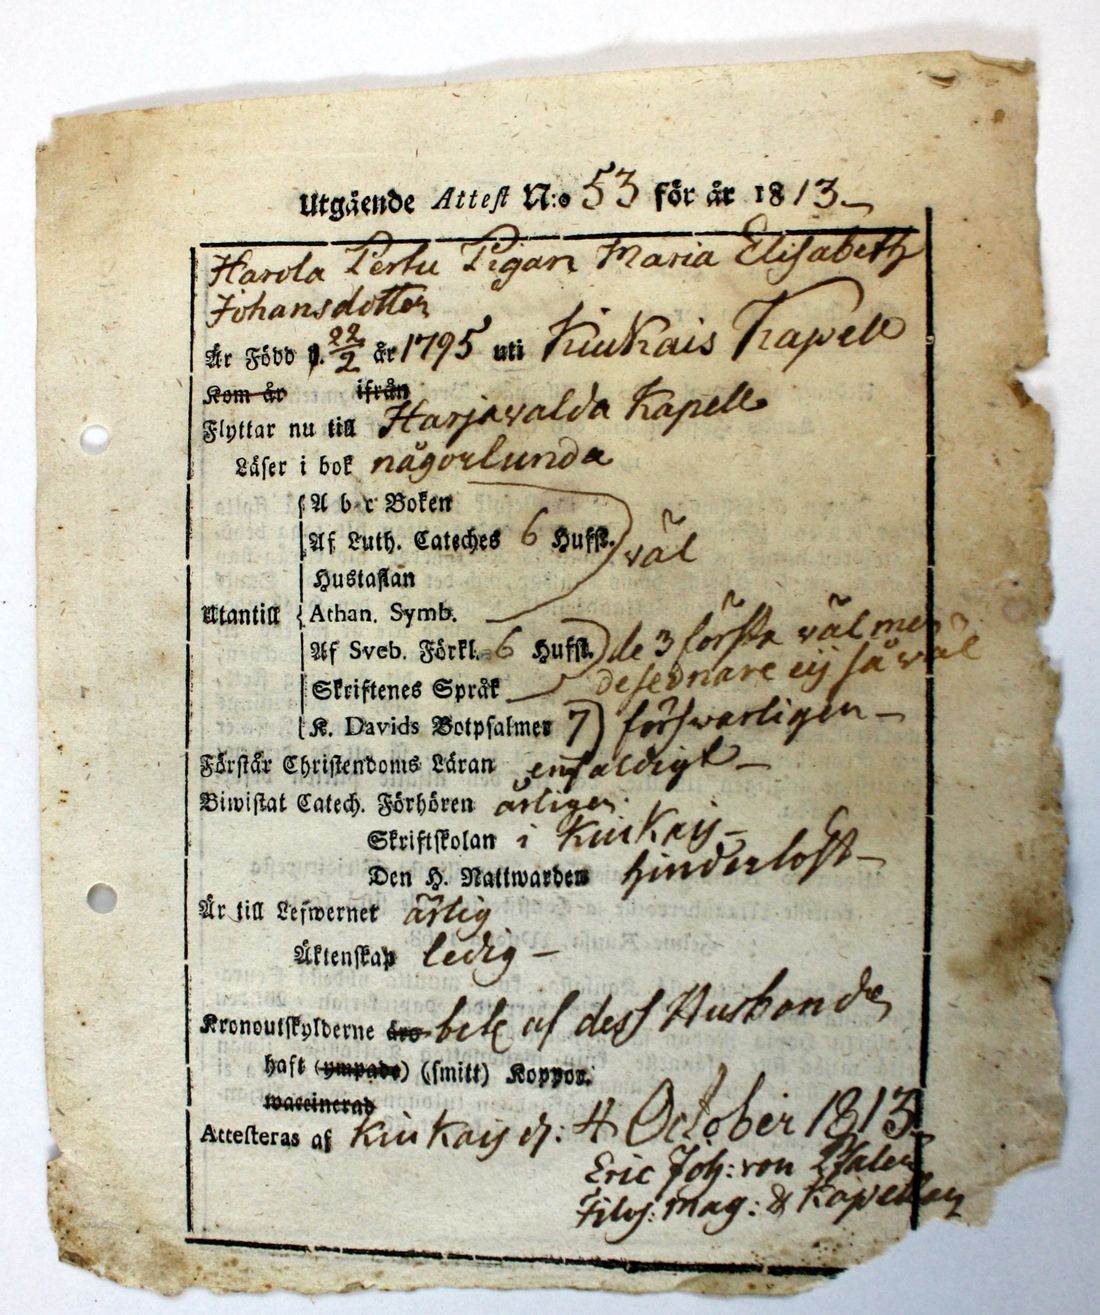 Utgående Attest N:o 53 för år 1813
Harola Perlu Pigan Maria Elisabeth
Johansdotter
Är Född d. 22/2 år 1795 uti Kiukais Kapell
Kom år ifrån
Flyttar nu till Harjavalda Kapell
Läser i bok någorlunda
A b c Boken
Af Luth. Cateches 6 Hufst. väl
Hustaflan
Utantill Athan. Symb.
Af Sveb. Förkl. 6 Hufst. de 3 förste väl men
Skriftenes Språk de sednare eij så väl
K. Davids Botpsalmer 7 försvarligen
Förstår Christendoms Läran enfaldigt
Biwistat Catech. Förhören årligen
Skriftskolan i Kiukais
Den H. Nattwarden hinderlöst
Är till Lefwernet ärlig
Äktenskap ledig
Kronoutskylderne äro bet. af dess Husbonde
haft (ympade) (smitt) Koppor.
waccinerad
Attesteras af Kiukais d: 4 October 1813.
Eric Joh: von Pfaler
Filos: mag: & Kapellan